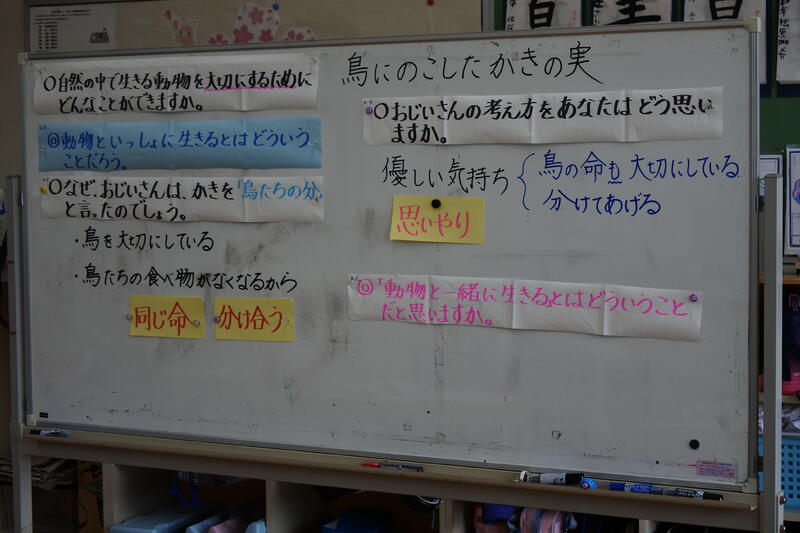 〇自然の中で生きる動物を大切にするために
どんなことができますか。
◎動物といっしょに生きるとはどういう
ことだろう。
〇なぜ、おじいさんは、かきを「鳥たちの分」
と言ったのでしょう。
・鳥を大切にしている
・鳥たちの食べ物がなくなるから
同じ命
分け合う
鳥にのこしたかきの実
〇おじいさんの考え方をあなたはどう思い
ますか。
優しい気持ち
鳥の命も大切にしている
分けてあげる
思いやり
◎「動物と一緒に生きる」とはどういうこと
だと思いますか。